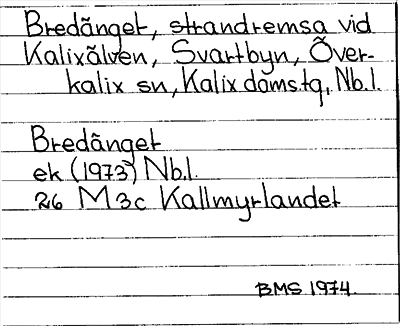 Bredänget, strandremsa vid
Kalixälven, Svartbyn, Över-
kalix sn, Kalix domstg, Nb.l.
Bredänget
ek (1973) Nb.l.
26 M 3c Kallmyrlandet
BMS 1974.